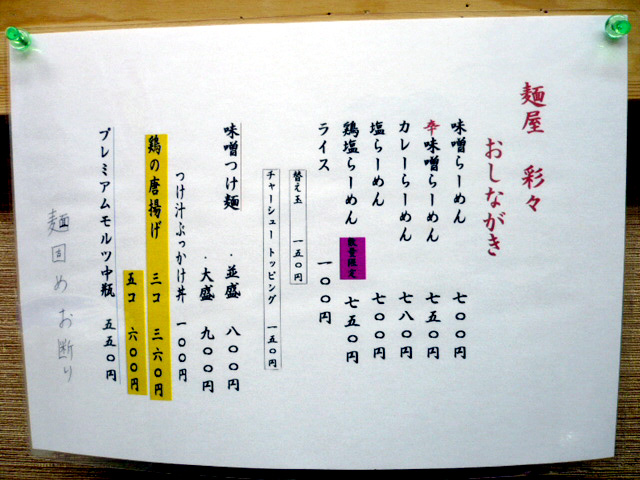 麺屋 彩々
おしながき
味噌らーめん 七〇〇円
辛味噌らーめん 七五〇円
カレーらーめん 七八〇円
塩らーめん 七〇〇円
鶏塩らーめん 数量限定 七五〇円
ライス 一〇〇円
替え玉 一五〇円
チャーシュートッピング 一五〇円
味噌つけ麺 ・並盛 八〇〇円
・大盛 九〇〇円
つけ汁ぶっかけ丼 一〇〇円
鶏の唐揚げ 三コ 三六〇円
五コ 六〇〇円
プレミアムモルツ中瓶 五五〇円
麺固めお断り